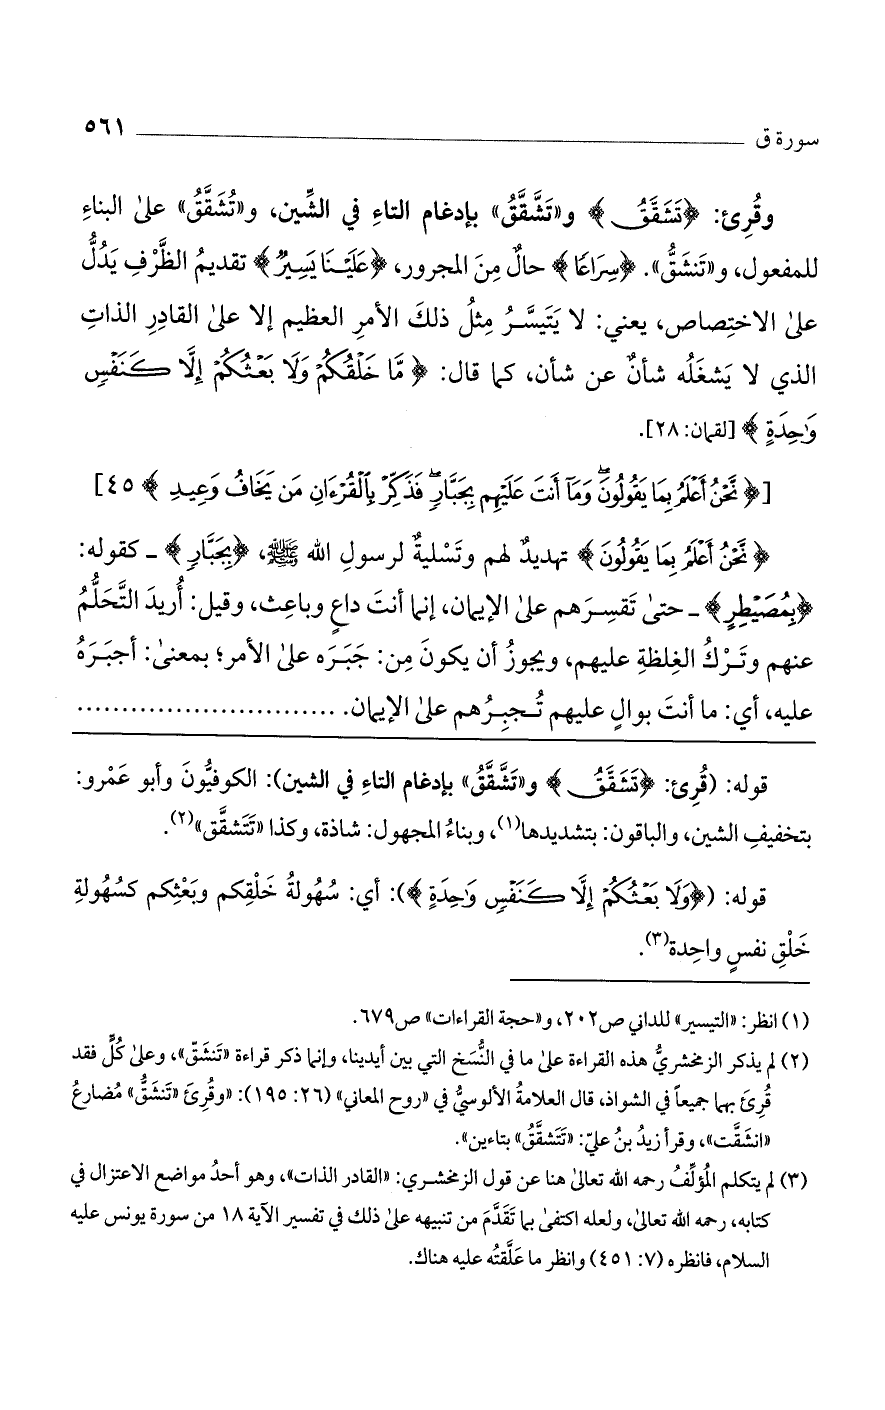 سورة ق ٥٦١
وقُرِئ: ﴿تَشَقَّقُ﴾ و«تَشَّقَّقُ» بإدغام التاءِ في الشِّين، و«تُشَقَّقُ» علىٰ البناءِ
للمفعول، و«تَنشَقُّ». ﴿سِرَاعًا﴾ حالٌ مِنَ المجرور، ﴿عَلَيْنَا يَسِيرٌ﴾ تقديمُ الظَّرْفِ يَدُلُّ
علىٰ الاختِصاص، يعني: لا يَتَيسَّرُ مِثلُ ذلكَ الأمرِ العظيم إلا علىٰ القادِرِ الذاتِ
الذي لا يَشغَلُه شأنٌ عن شأن، كما قال: ﴿مَّا خَلْقُكُمْ وَلَا بَعْثُكُمْ إِلَّا كَنَفْسٍ
وَٰحِدَةٍ﴾ [لقمان: ٢٨].
[﴿نَّحْنُ أَعْلَمُ بِمَا يَقُولُونَ ۖ وَمَآ أَنتَ عَلَيْهِم بِجَبَّارٍ ۖ فَذَكِّرْ بِٱلْقُرْءَانِ مَن يَخَافُ وَعِيدِ﴾ ٤٥]
﴿نَّحْنُ أَعْلَمُ بِمَا يَقُولُونَ﴾ تهديدٌ لهم وتَسْليةٌ لرسولِ الله ﷺ، ﴿بِجَبَّارٍ﴾ ـ كقوله:
﴿بِمُصَيْطِرٍ﴾ ـ حتىٰ تَقسِرَهم علىٰ الإيمان، إنما أنتَ داعٍ وباعِث، وقيل: أُريدَ التَّحَلُّمُ
عنهم وتَرْكُ الغِلظةِ عليهم، ويجوزُ أن يكونَ مِن: جَبَرَه علىٰ الأمر؛ بمعنىٰ: أجبَرَهُ
عليه، أي: ما أنتَ بوالٍ عليهم تُجبِرُهم علىٰ الإيمان. ..............................
قوله: (قُرِئ: ﴿تَشَقَّقُ﴾ و«تَشَّقَّقُ» بإدغام التاءِ في الشين): الكوفيُّونَ وأبو عَمْرو:
بتخفيفِ الشين، والباقون: بتشديدها(١)، وبناءُ المجهول: شاذة، وكذا «تَتَشقَّق»(٢).
قوله: (﴿وَلَا بَعْثُكُمْ إِلَّا كَنَفْسٍ وَٰحِدَةٍ﴾): أي: سُهُولةُ خَلْقِكم وبَعْثِكم كسُهُولةِ
خَلْقِ نفسٍ واحِدة(٣).
(١) انظر: «التيسير» للداني ص٢٠٢، و«حجة القراءات» ص٦٧٩.
(٢) لم يذكر الزمخشريُّ هذه القراءة علىٰ ما في النُّسَخ التي بين أيدينا، وإنما ذكر قراءة «تَنشَقّ»، وعلىٰ كُلٍّ فقد
قُرِئَ بهما جميعاً في الشواذ، قال العلامةُ الألوسيُّ في «روح المعاني» (٢٦: ١٩٥): «وقُرِئَ «تَنشَقُّ» مُضارعُ
«انشَقَّت»، وقرأ زيدُ بنُ عليّ: «تَتَشقَّقُ» بتاءين».
(٣) لم يتكلم المُؤلِّفُ رحمه الله تعالىٰ هنا عن قول الزمخشري: «القادر الذات»، وهو أحدُ مواضع الاعتزال في
كتابه، رحمه الله تعالىٰ، ولعله اكتفىٰ بما تَقَدَّمَ من تنبيهه علىٰ ذلك في تفسير الآية ١٨ من سورة يونس عليه
السلام، فانظره (٧: ٤٥١) وانظر ما عَلَّقتُه عليه هناك.